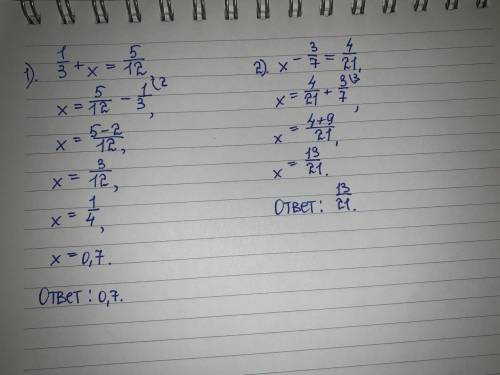 1). 1/3 + x = 5/12,
x = 5/12 - 1/3 (2,
x = 5-2/12,
x = 3/12,
x = 1/4,
x = 0,7.
Ответ: 0,7.
2). x - 3/7 = 4/21,
x = 4/21 + 3/7 \3,
x = 4+9/21,
x = 13/21.
Ответ: 13/21.